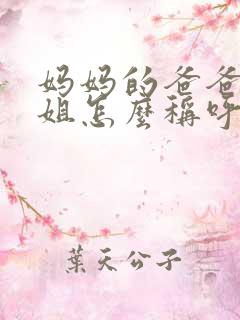 妈妈的爸爸
姐怎麼稱呼
葉天公子